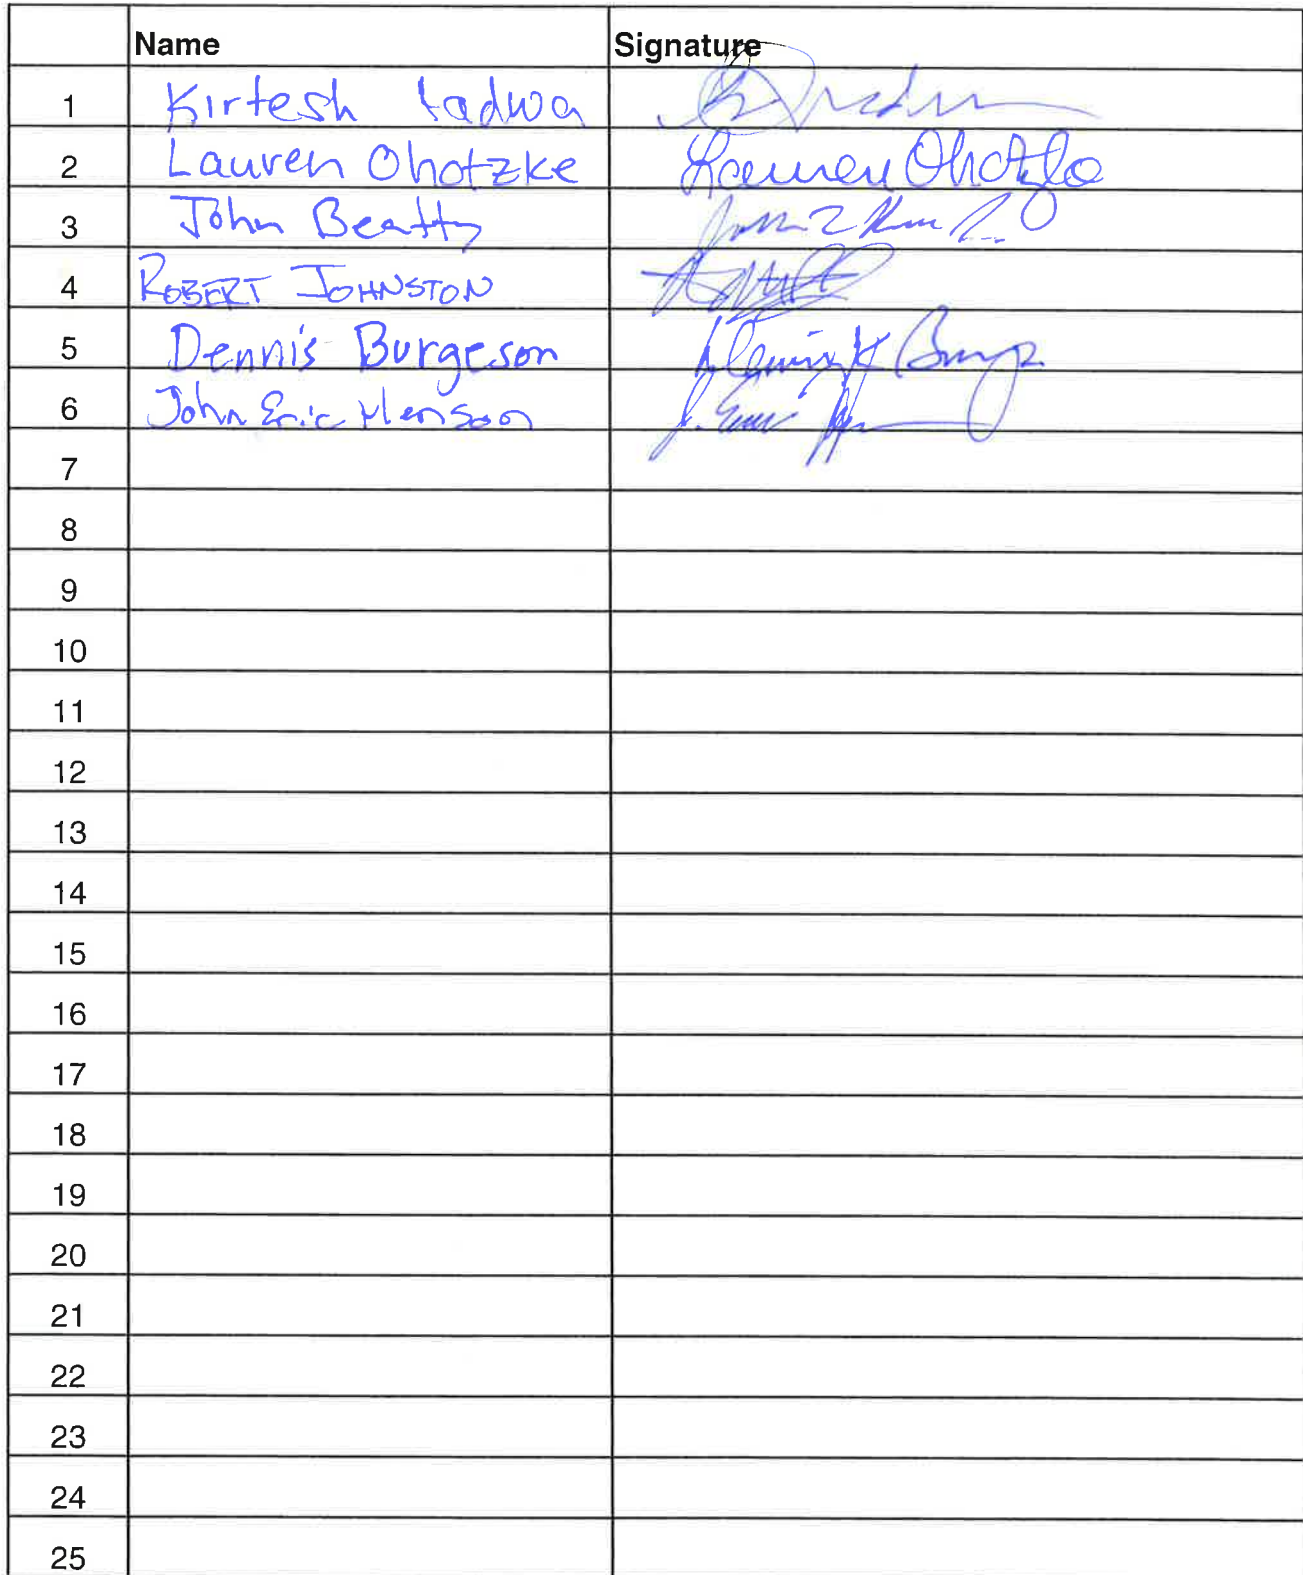 Name Signature
1 Kirtesh tadwa
2 Lauren Ohotzke Lauren Ohotzke
3 John Beatty
4 ROBERT JOHNSTON
5 Dennis Burgeson
6 John Eric Henson
7
8
9
10
11
12
13
14
15
16
17
18
19
20
21
22
23
24
25